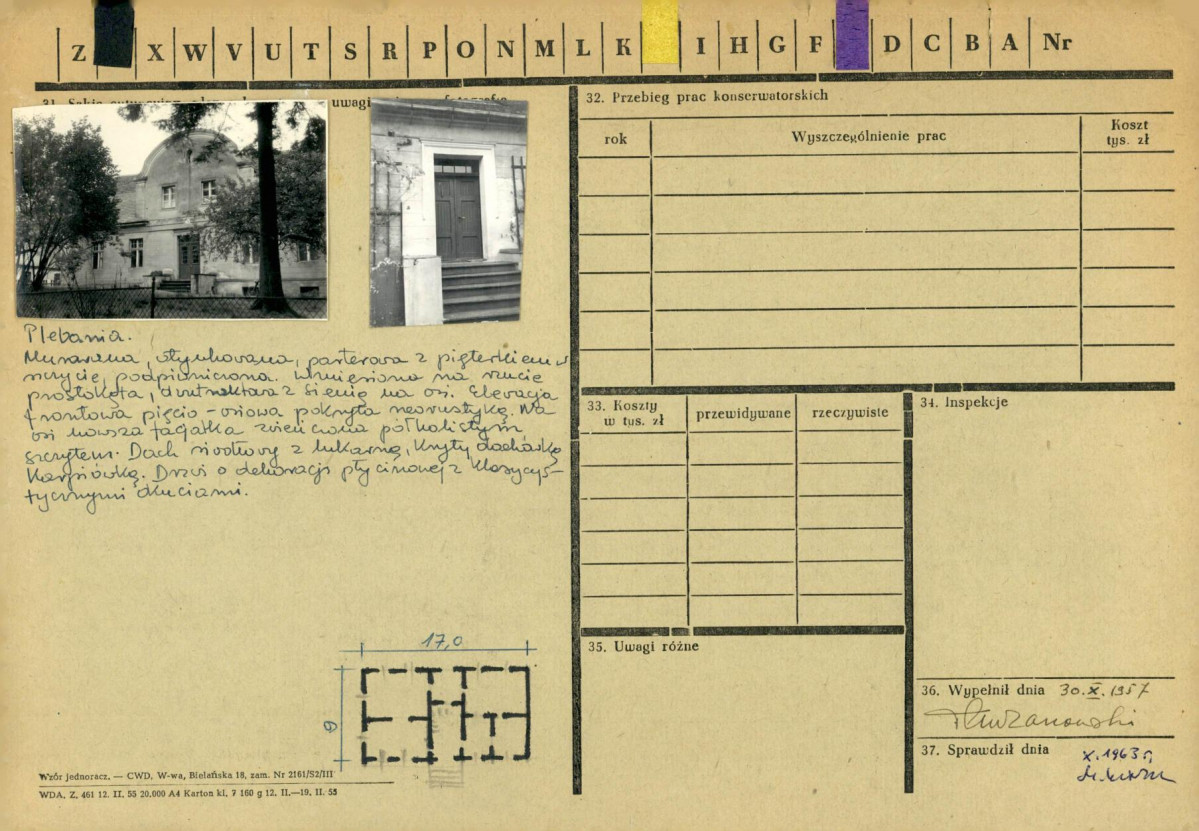 Z X W V U T S R P O N M L K I H G F D C B A Nr
31. Szkic sytuacyjny, uwagi fotografie
Plebania.
Murowana, otynkowana, parterowa z pięterkiem w
szczycie, podpiwniczona. Wzniesiona na rzucie
prostokąta, dwutraktowa z sienią na osi. Elewacja
frontowa pięcio-osiowa pokryta neorustyką. Na
osi nowsza facjatka zwieńczona półkolistym
szczytem. Dach siodłowy z lukarną, kryty dachówką
karpiówką. Drzwi o dekoracji płycinowej z klasycys-
tycznymi okuciami.
17,0
9
Wzór jednoracz. — CWD. W-wa, Bielańska 18, zam. Nr 2161/S2/III
WDA. Z. 461 12. II. 55 20.000 A4 Karton kl. 7 160 g 12. II.—19. II. 55
32. Przebieg prac konserwatorskich
rok
Wyszczególnienie prac
Koszt
tys. zł
33. Koszty
w tys. zł
przewidywane
rzeczywiste
34. Inspekcje
35. Uwagi różne
36. Wypełnił dnia 30.X.1957
37. Sprawdził dnia
X.1963 r.